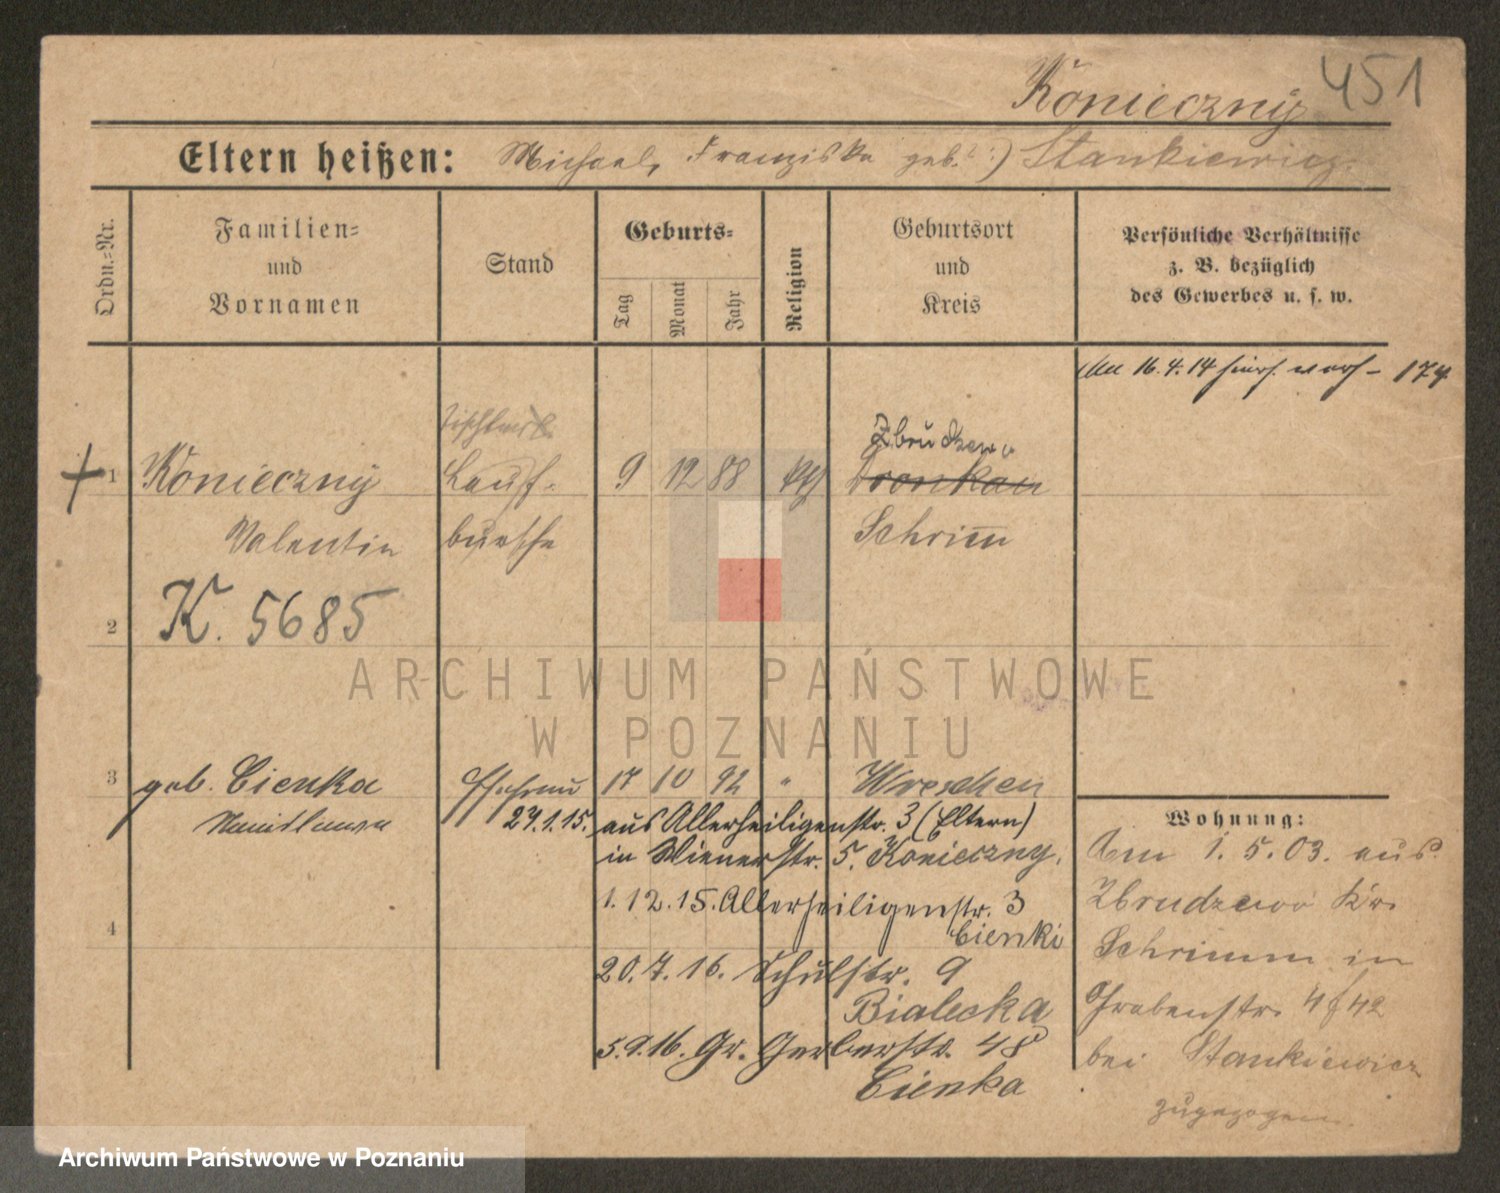 451
Konieczny
Eltern heißen: Michael, Franziska geb. Stankiewicz.
Ordn.-Nr.
Familien-
und
Vornamen
Stand
Geburts-
Tag
Monat
Jahr
Religion
Geburtsort
und
Kreis
Persönliche Verhältnisse
z. B. bezüglich
des Gewerbes u. s. w.
16. 4. 14 174
Zbrudzewo
1 Konieczny Lauf- 9 12 88 kth
Schrimm
Valentin bursche
K. 5685
2
ARCHIWUM PAŃSTWOWE
W POZNANIU
3 geb. Cienka Ehefrau 17 10 92 " Wreschen
27.1.15. aus Allerheiligenstr. 3 (Eltern)
in Wienerstr. 5. Konieczny.
1.12.15. Allerheiligenstr. 3
Cienki
4
20.7.16. Schulstr. 9
Bialecka
5.9.16. Gr. Gerberstr. 48
Cienka
Wohnung:
Am 1. 5. 03. aus
Zbrudzewo Kr.
Schrimm in
Grabenstr.
bei Stankiewicz
zugezogen.
Archiwum Państwowe w Poznaniu